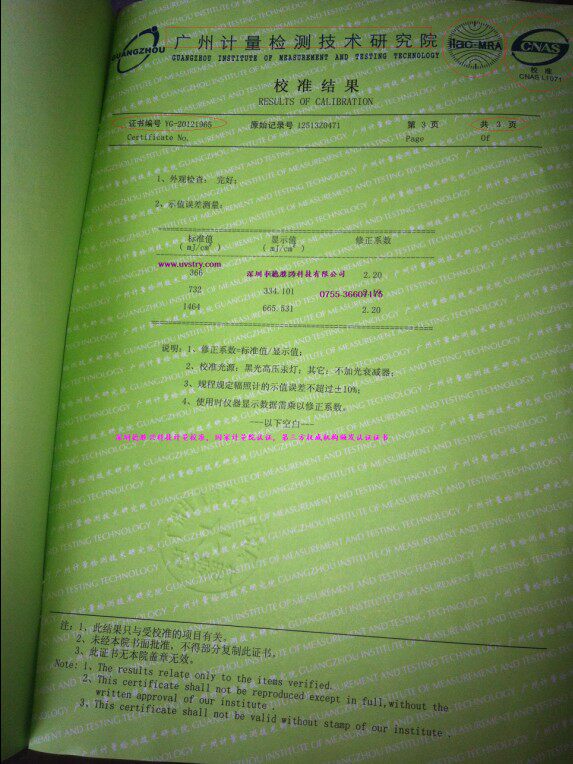 GUANGZHOU
广州计量检测技术研究院
GUANGZHOU INSTITUTE OF MEASUREMENT AND TESTING TECHNOLOGY
ilac-MRA
CNAS
校准
CNAS L1071
校准结果
RESULTS OF CALIBRATION
证书编号 YG-20121965 原始记录号 12513Z0471 第 3 页 共 3 页
Certificate No. Page Of
1、外观检查: 完好;
2、示值误差测量:
标准值 显示值 修正系数
( mJ/cm² ) ( mJ/cm² )
www.uvstry.com
366 科技有限公司 2.20
732 334.101
0755-36607175
1464 665.531 2.20
说明: 1、修正系数=标准值/显示值;
2、校准光源: 黑光高压汞灯; 其它: 不加光衰减器;
3、规程规定辐照计的示值误差不超过±10%;
4、使用时仪器显示数据需乘以修正系数。
---以下空白---
科技计量校准, 国家计量院认证, 第三方权威机构颁发认证证书
注: 1、此结果只与受校准的项目有关。
2、未经本院书面批准, 不得部分复制此证书。
3、此证书无本院盖章无效。
Note: 1、The results relate only to the items verified.
2、This certificate shall not be reproduced except in full,without the
written approval of our institute .
3、This certificate shall not be valid without stamp of our institute .